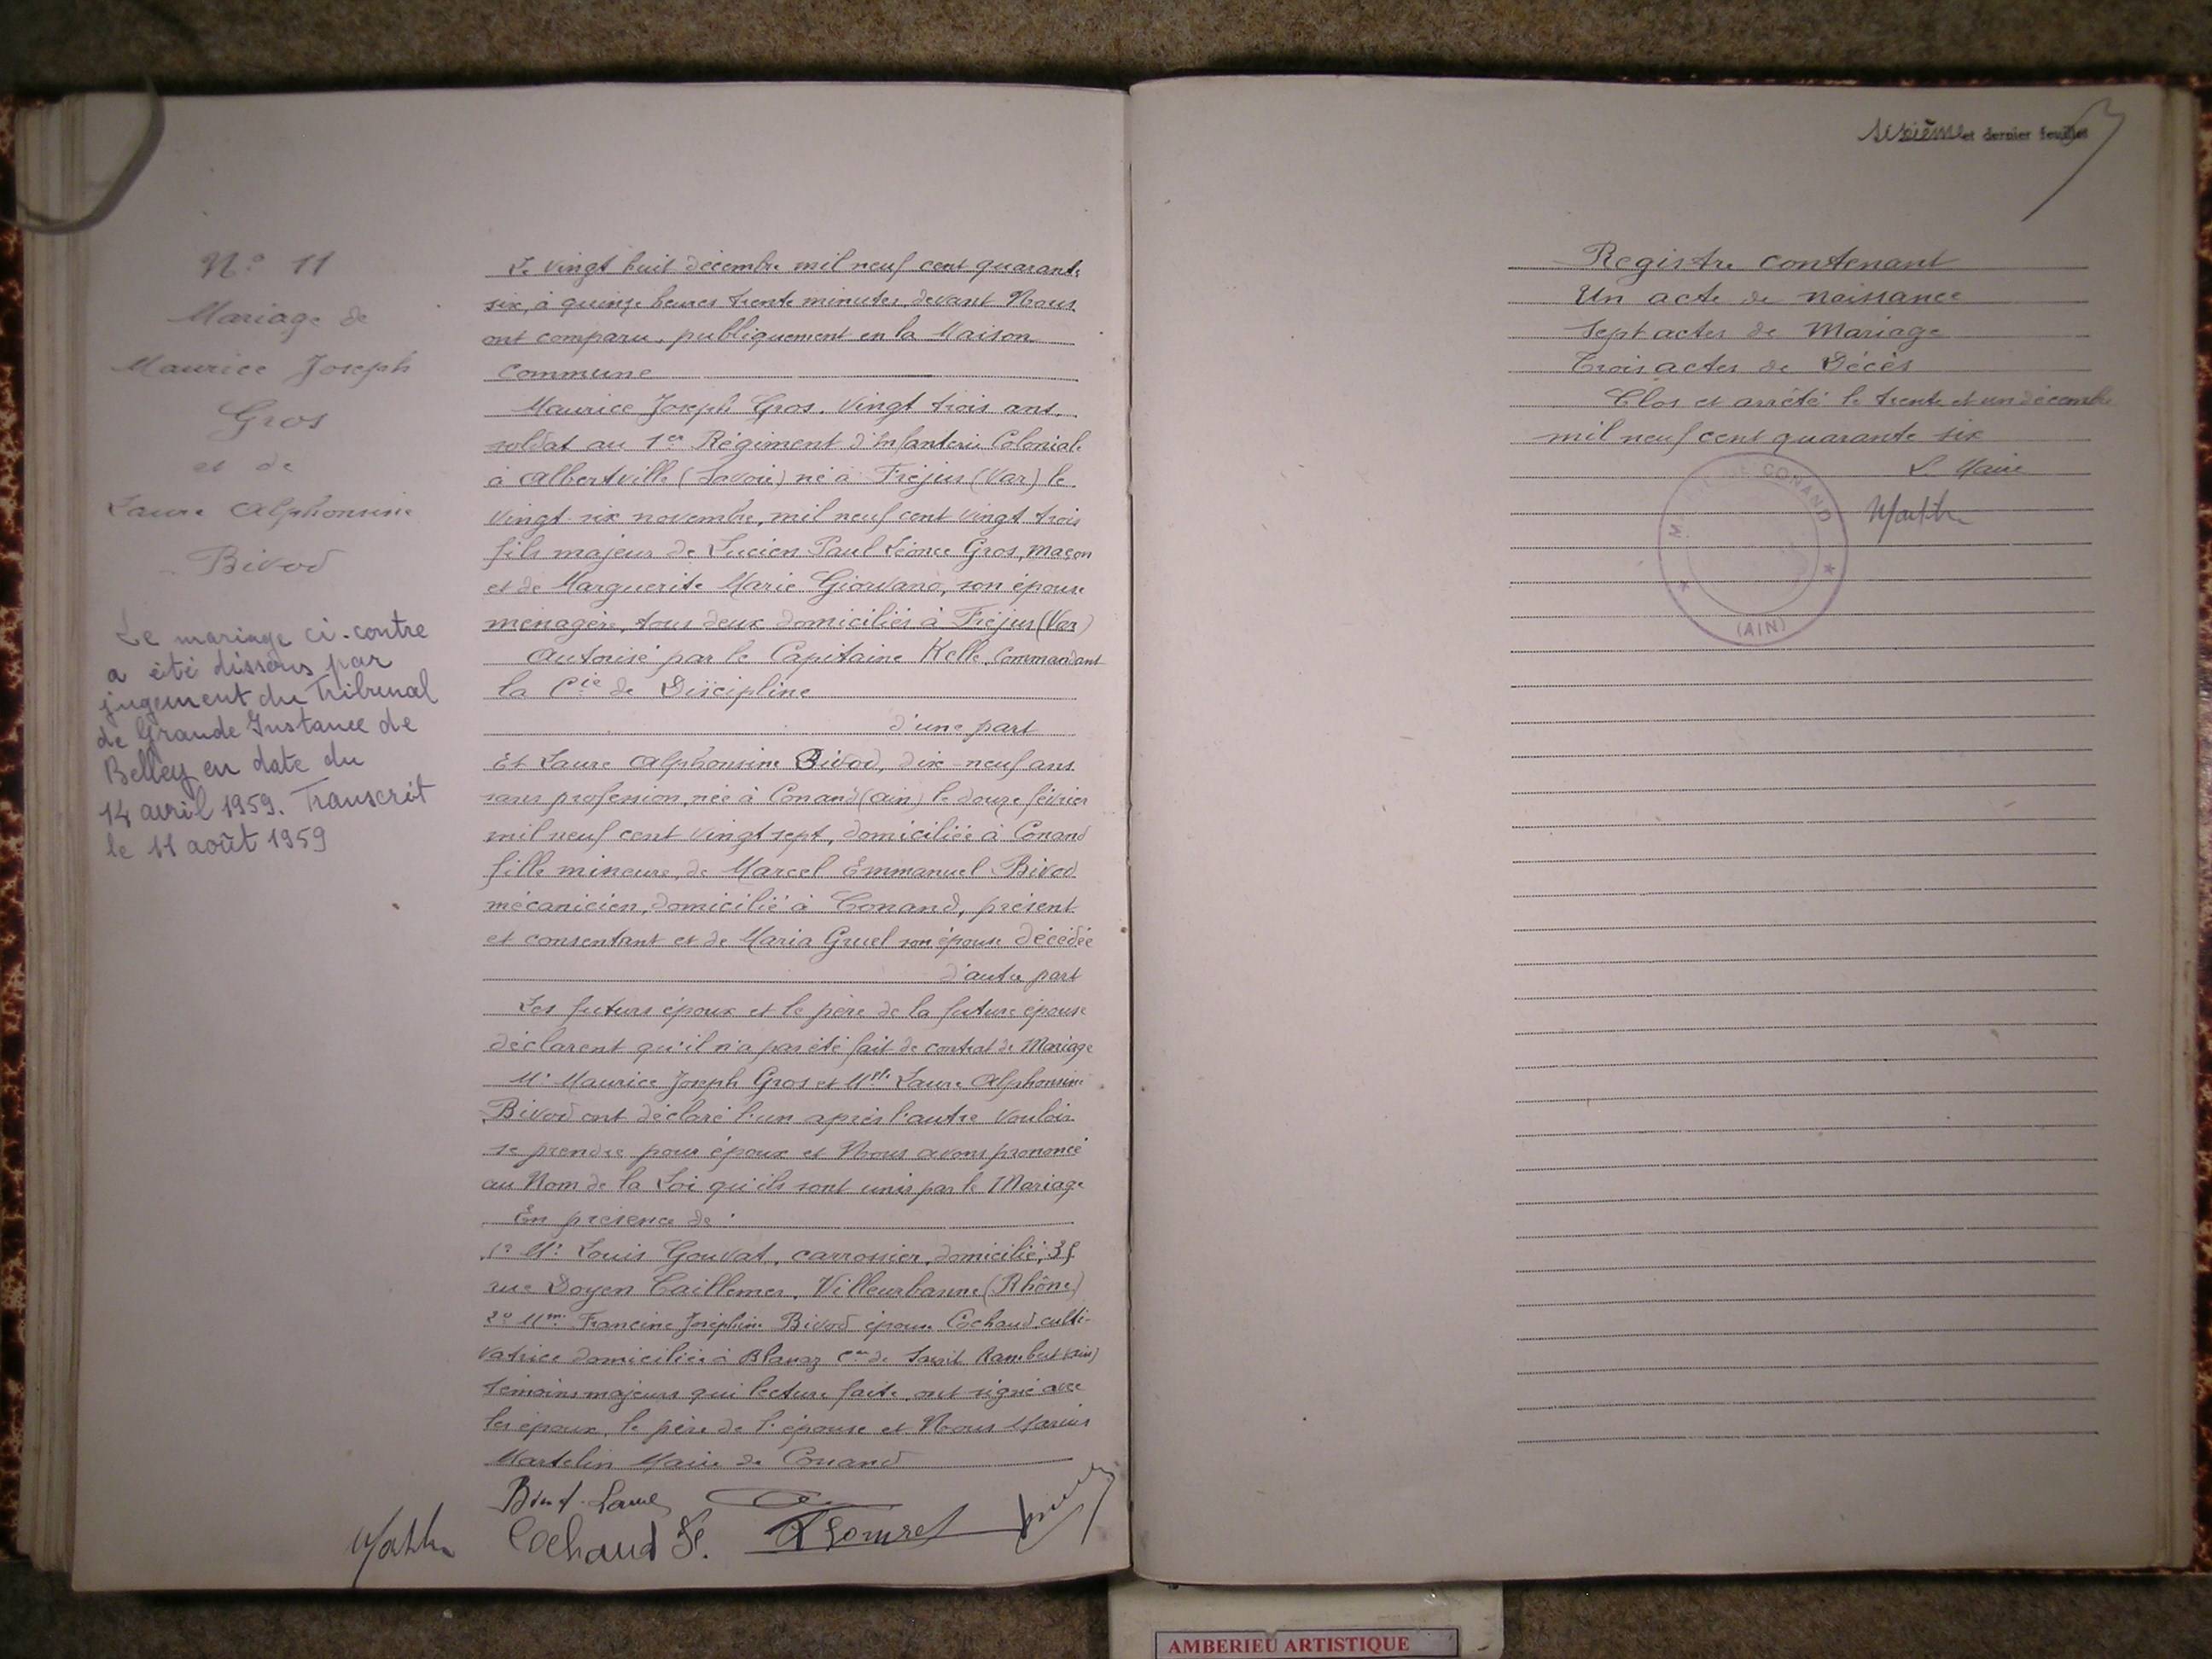 N° 11
Mariage de
Maurice Joseph
Gros
et de
Laure Alphonsine
Bivod
Le mariage ci-contre
a été dissous par
jugement du Tribunal
de Grande Instance de
Belley en date du
14 avril 1959. Transcrit
le 11 août 1959
Le vingt huit décembre mil neuf cent quarante
six, à quinze heures trente minutes, devant Nous
ont comparu, publiquement en la Maison
Commune
Maurice Joseph Gros, vingt trois ans,
soldat au 1er Régiment d'Infanterie Coloniale
à Albertville (Savoie) né à Fréjus (Var) le
vingt-six novembre, mil neuf cent vingt trois
fils majeur de Lucien Paul Léonce Gros, maçon
et de Marguerite Marie Giordano, son épouse
ménagère, tous deux domiciliés à Fréjus (Var)
Autorisé par le Capitaine Kelle, Commandant
la Cie de Discipline
d'une part
Et Laure Alphonsine Bivod, dix-neuf ans
sans profession, née à Conand (Ain) le douze février
mil neuf cent vingt sept, domiciliée à Conand
fille mineure de Marcel Emmanuel Bivod
mécanicien, domicilié à Conand, présent
et consentant et de Maria Gruel son épouse décédée
d'autre part
Les futurs époux et le père de la future épouse
déclarent qu'il n'a pas été fait de contrat de Mariage
Mr Maurice Joseph Gros et Melle Laure Alphonsine
Bivod ont déclaré l'un après l'autre vouloir
se prendre pour époux et Nous avons prononcé
au Nom de la Loi qu'ils sont unis par le Mariage
En présence de :
1° Mr Louis Gouvat, carrossier, domicilié, 35
rue Doyen Caillemer, Villeurbanne (Rhône)
2° Mme Francine Joséphine Bivod épouse Cochaud, culti-
vatrice domiciliée à Blanaz Cne de Saint Rambert (Ain)
témoins majeurs qui lecture faite, ont signé avec
les époux, le père de l'épouse et Nous Marius
Martelin Maire de Conand
Bivod Laure
Cochaud Fe.
seizième et dernier feuillet
Registre contenant
Un acte de naissance
Sept actes de Mariage
Trois actes de Décès
Clos et arrêté le trente et un décembre
mil neuf cent quarante six
Le Maire
CONAND
(AIN)
AMBERIEU ARTISTIQUE